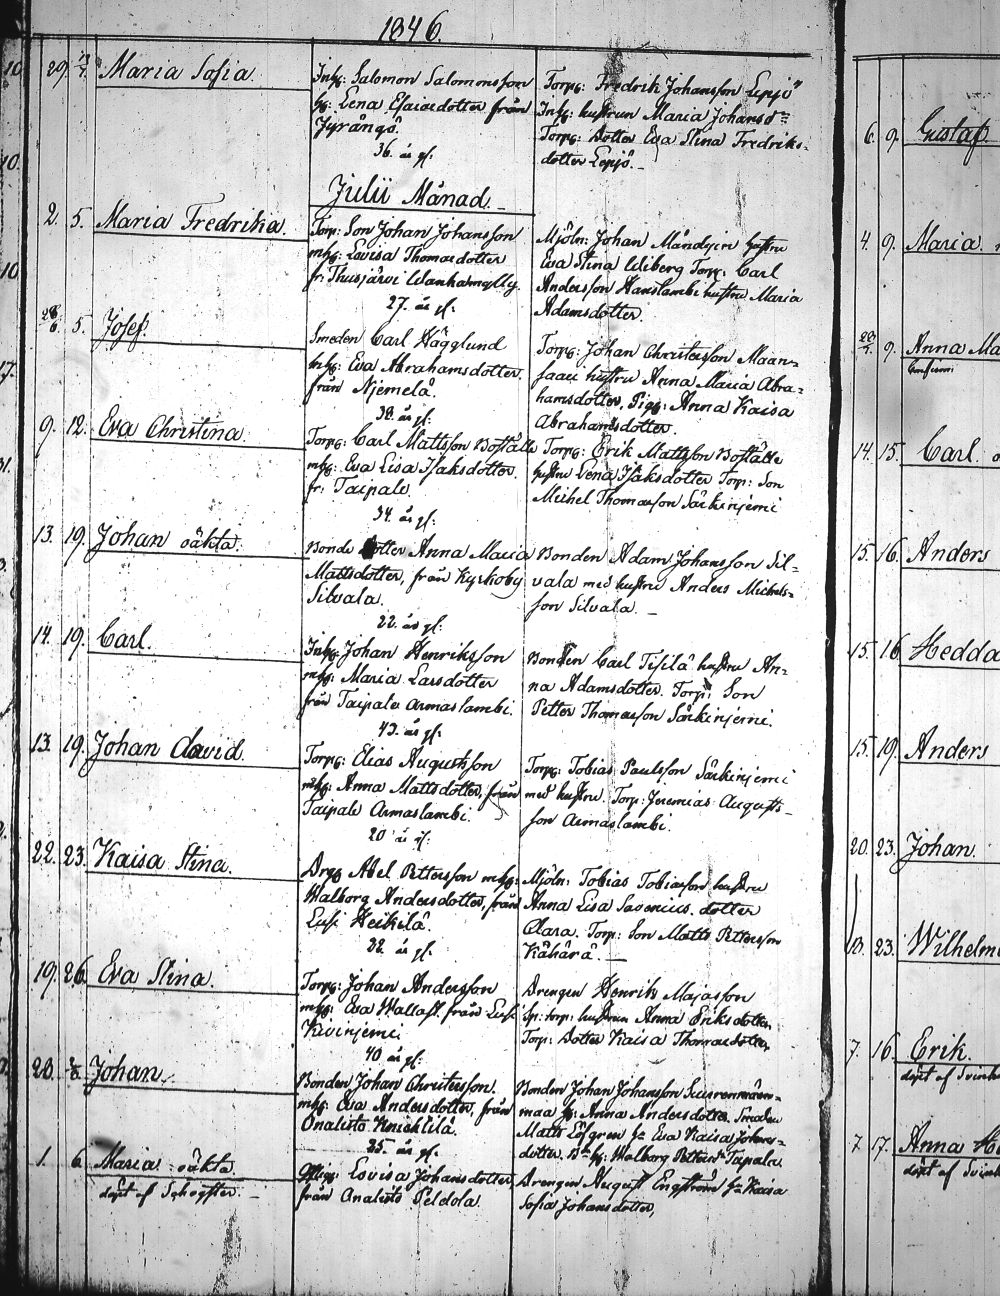 1846.
29. 12/7. Maria Sofia
Inhs: Salomon Salomonsson
h: Lena Esaiædotter från
Jyrängö.
36. år gl:
Torps: Fredrik Johansson Lepjö
Inhs: hustrun Maria Johansd:
Torps: Dotter Eva Stina Fredriks-
dotter Lepjö.
Julii Månad.
2. 5. Maria Fredrika.
Torp: Son Johan Johansson
mhs: Lovisa Thomasdotter
fr: Thusjärvi Wanhamylly.
27. år gl:
Mjöln: Johan Mändyin hustru
Eva Stina Wiberg Torp: Carl
Andersson Hanslambi hustru Maria
Adamsdotter.
28/6. 5. Josef.
Smeden Carl Hägglund
mhs: Eva Abrahamsdotter.
från Njemelä.
38. år gl:
Torps: Johan Christersson Maan-
saari hustru Anna Maria Abra-
hamsdotter, Pigs: Anna Kaisa
Abrahamsdotter.
9. 12. Eva Christina.
Torps: Carl Mattsson Boställe
mhs: Eva Lisa Isaksdotter.
fr: Taipale.
34. år gl:
Torps: Erik Mattsson Boställe
hustru Lena Isaksdotter Torp: Son
Michel Thomasson Särkinjemi
13. 19. Johan oäkta.
Bonde Dotter Anna Maria
Mattsdotter, från Kyrkoby
Silvala.
22. år gl:
Bonden Adam Johansson Sil-
vala med hustru Anders Michels-
son Silvala.
14. 19. Carl.
Inhs Johan Henriksson
mhs: Maria Larsdotter
från Taipale Armaslambi.
43. år gl:
Bonden Carl Tisilä hustru An-
na Adamsdotter. Torp: Son
Petter Thomasson Särkinjemi.
13. 19. Johan David.
Torps: Elias Augustsson
mhs: Anna Mattsdotter, från
Taipale Armaslambi.
20 år gl:
Torps: Tobias Paulsson Särkinjemi
med hustru. Torp: Jeremias August-
son Armaslambi.
22. 23. Kaisa Stina.
Drgs Abel Pettersson mhs:
Walborg Andersdotter, från
Lusi Heikilä.
32. år gl:
Mjöln: Tobias Tobiasson hustru
Anna Lisa Savenius, dotter
Clara. Torp: Son Matts Pettersson
Kähärä.
19. 26. Eva Stina.
Torps: Johan Andersson
mhs: Eva Wallast. från Lusi
Kivinjemi.
40 år gl:
Drengen Henrik Majasson
Sp: torp: hustrun Anna Eriksdotter,
Torp: Dotter Kaisa Thomasdotter,
20. 2/8. Johan.
Bonden Johan Christersson.
mhs: Eva Andersdotter, från
Onalisto
25. år gl:
Bonden Johan Johansson
maa h: Anna Andersdotter Smeden
Matts Löfgren h: Eva Kaisa Johans-
dotter. Walborg Taipale.
1. 6. Maria oäkta.
döpt af
Lovisa Johansdotter,
från Onalisto Peldola.
Drengen August Engström h: Kaisa
Sofia Johansdotter,
6. 9. Gustaf.
4. 9. Maria.
9. Anna Ma
14. 15. Carl.
15. 16. Anders
15. 16 Hedda
15. 19. Anders
20. 23. Johan.
10. 23. Wilhelm
7. 16. Erik.
döpt af
7 17. Anna
döpt af